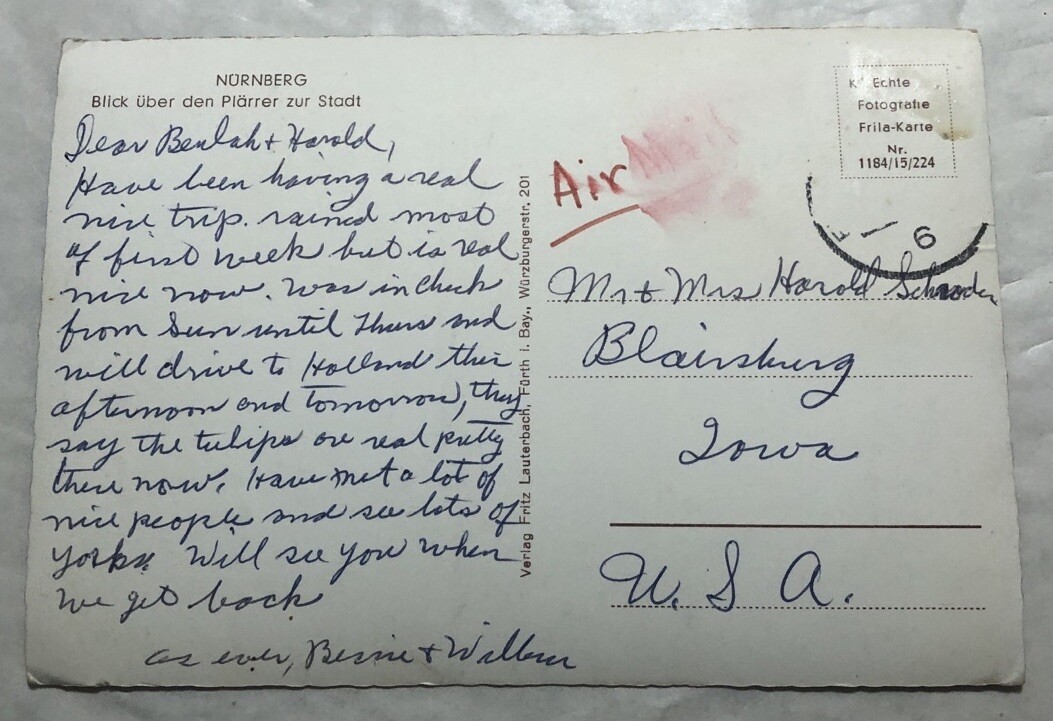 NÜRNBERG
Blick über den Plärrer zur Stadt
Dear Beulah + Harold,
Have been having a real
nice trip. rained most
of first week but is real
nice now. Was in Check
from Sun until Thurs and
will drive to Holland this
afternoon and tomorrow, they
say the tulips are real pretty
there now. Have met a lot of
nice people and see lots of
Will see you when
we get back
as ever, Bernie +
Verlag Fritz Lauterbach, Fürth i. Bay., Würzburgerstr. 201
Air Mail
Echte
Fotografie
Frila-Karte
Nr.
1184/15/224
6
Mr + Mrs Harold Schroder
Blairsburg
Iowa
U. S A.